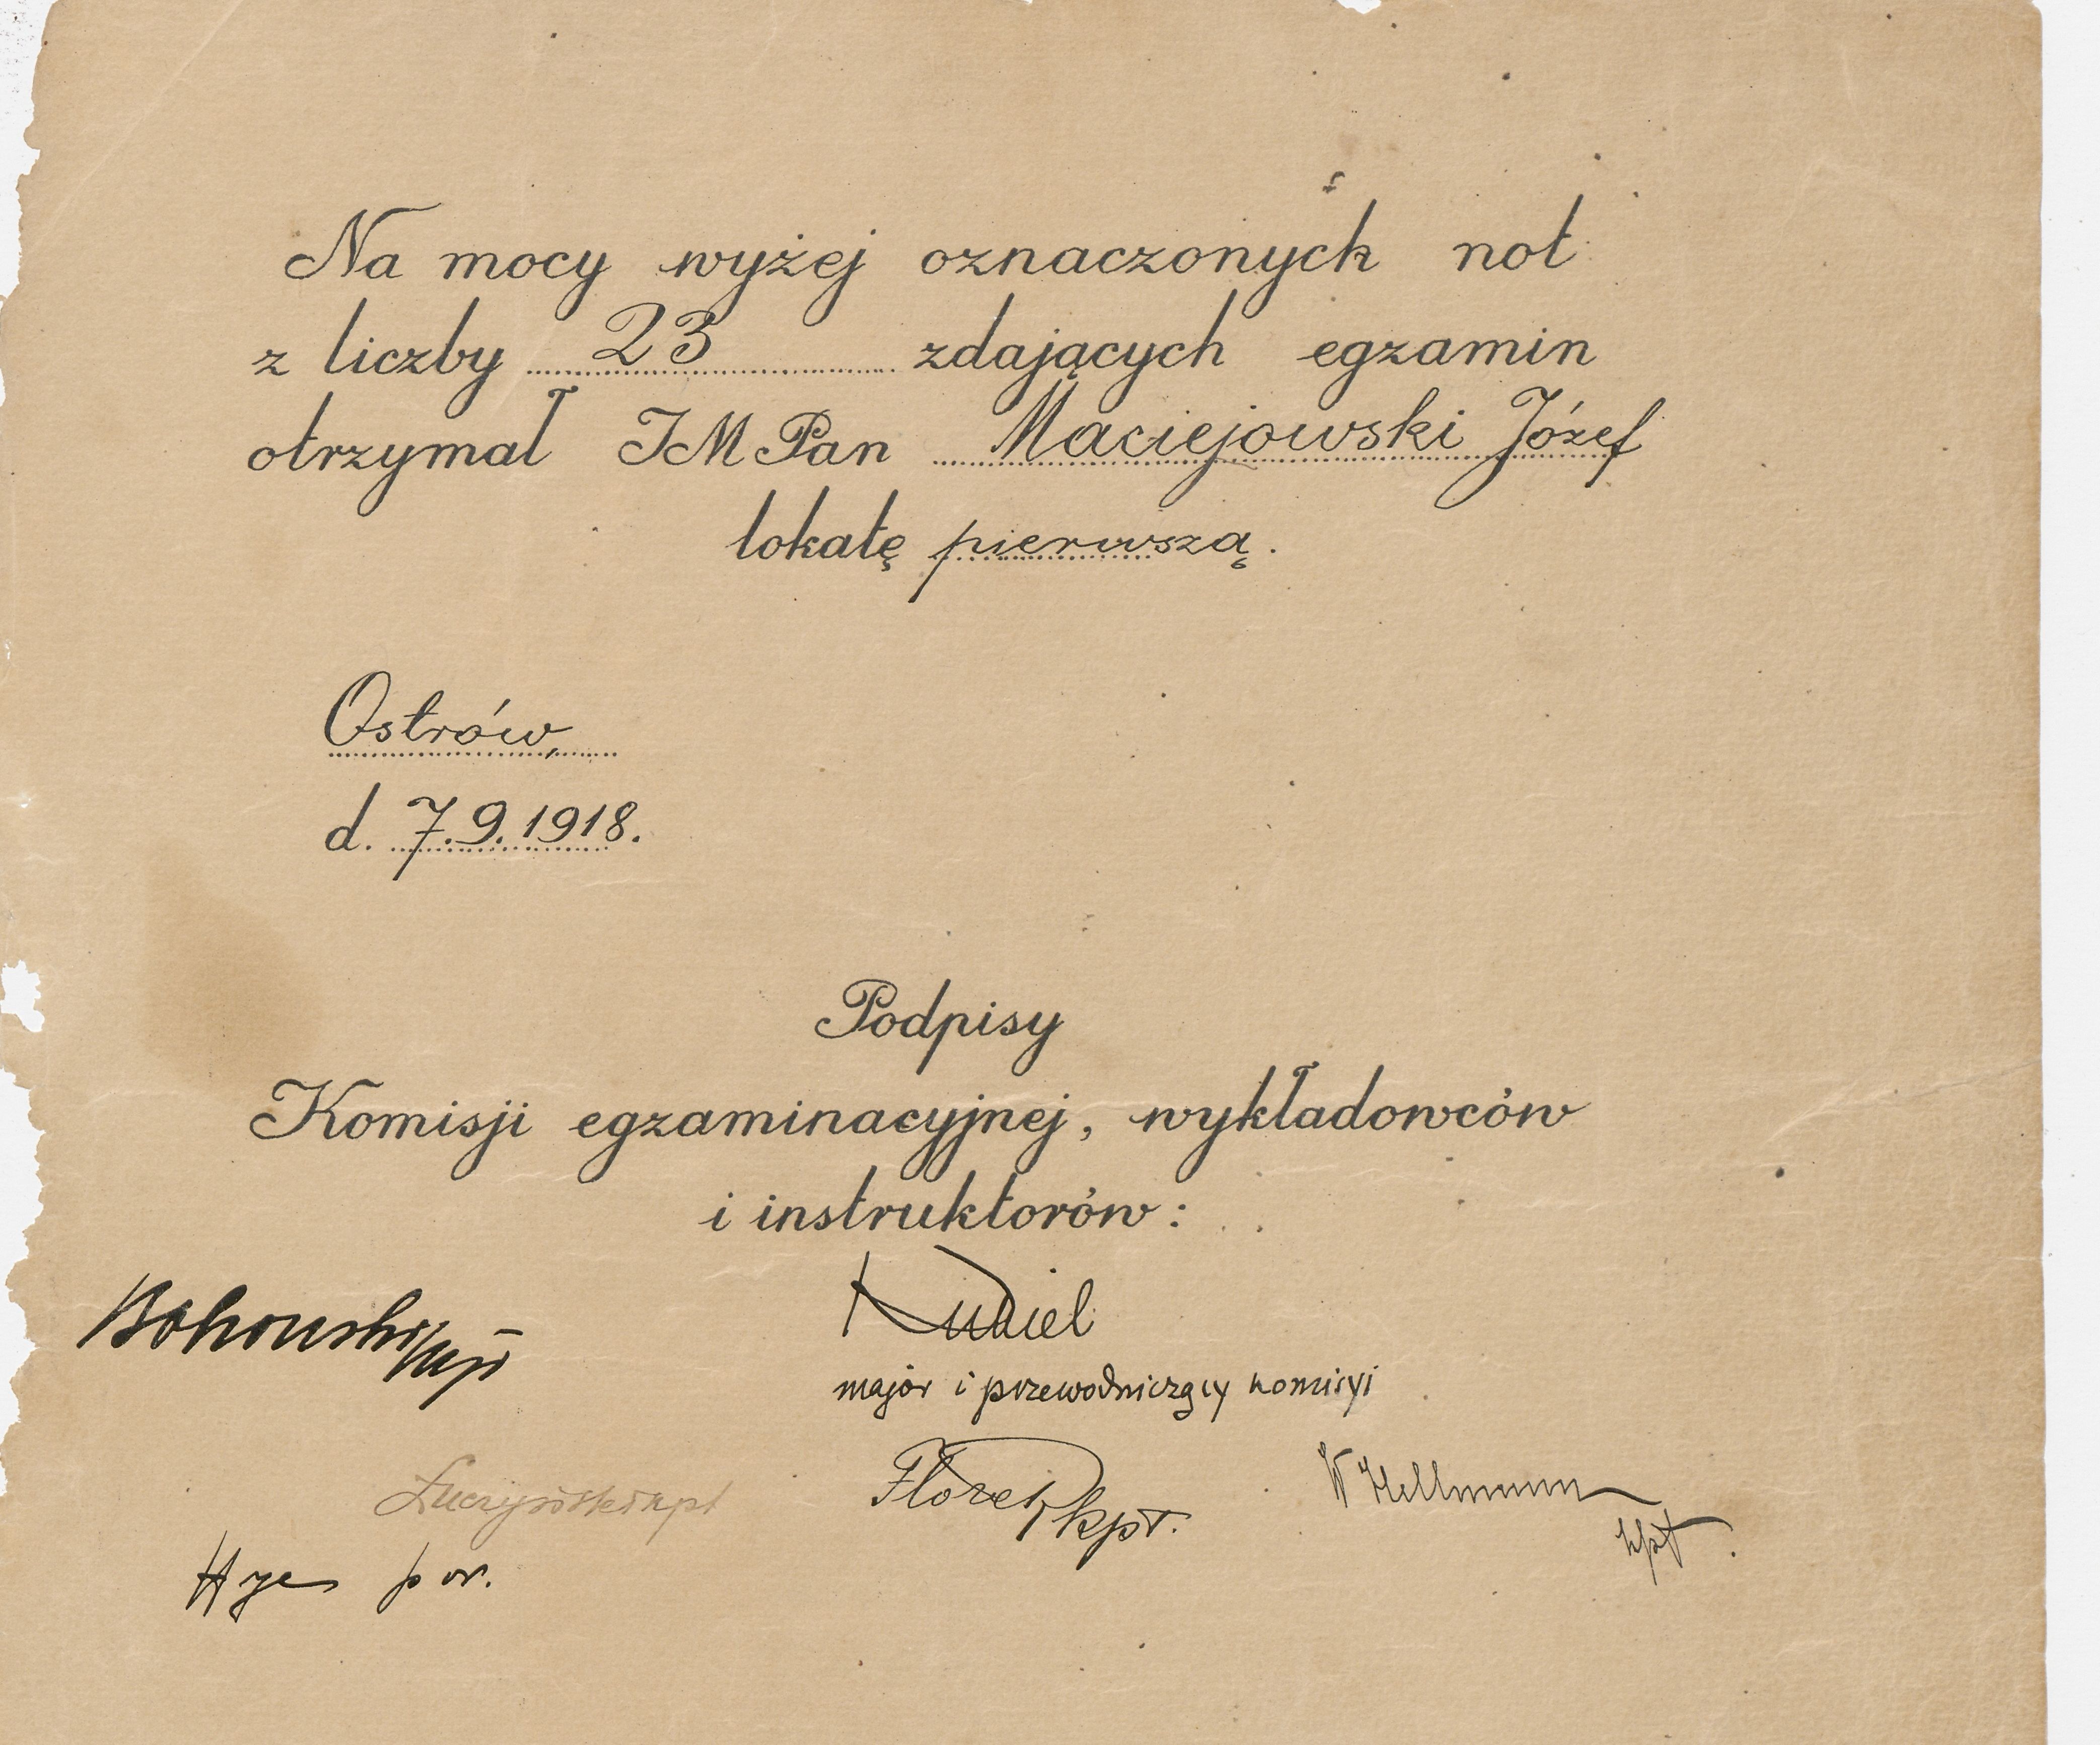 Na mocy wyżej oznaczonych not
z liczby 23 zdających egzamin
otrzymał JM Pan Maciejowski Józef
lokatę pierwszą.
Ostrów,
d. 7.9.1918.
Podpisy
Komisji egzaminacyjnej, wykładowców
i instruktorów:
major i przewodniczący komisyi
kpt.
W Hellmann
kpt.
por.